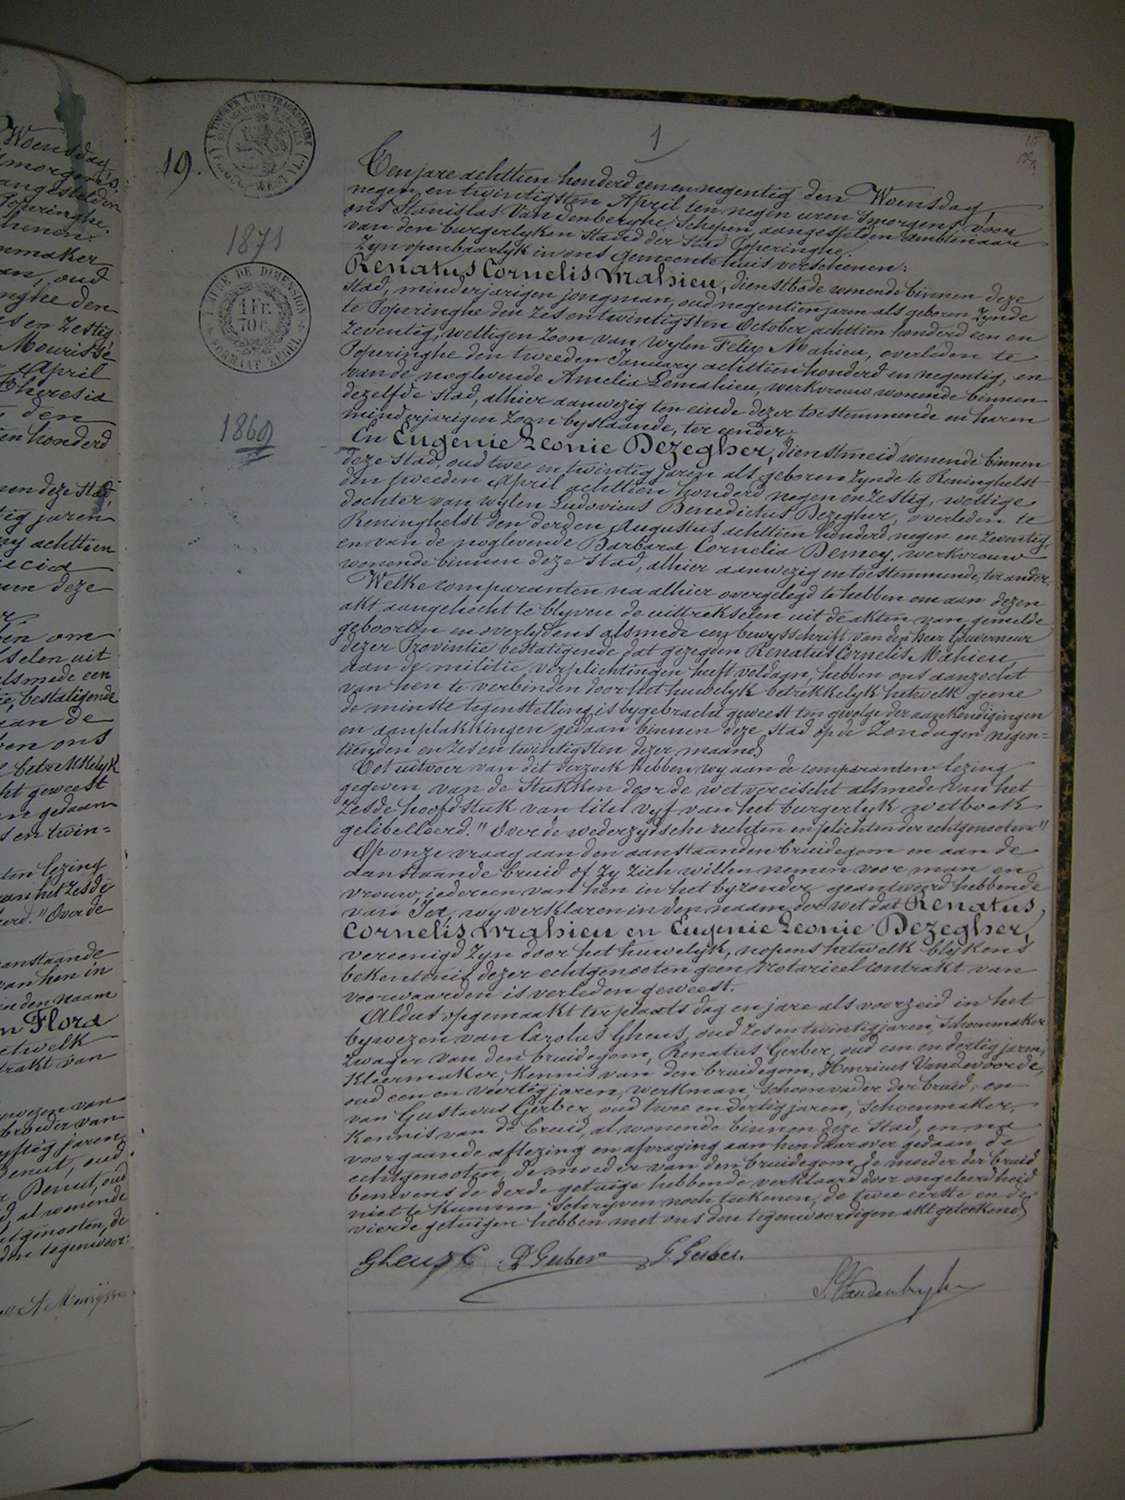 19.
1
1871
TIMBRE DE DIMENSION
1 FR.
70 C.
1869
Ten jare achttien honderd een en negentig den Woensdag
negen en twintigsten April ten negen uren 's morgens, voor
ons Stanislas Vandenberghe, Schepen, aangestelden ambtenaar
van den burgerlyken Stand der Stad Poperinghe,
Zyn openbaarlyk in ons gemeentehuis verschenen:
Renatus Cornelis Mahieu, dienstbode wonende binnen deze
Stad, minderjarigen jongman, oud negentien jaren als geboren Zynde
te Poperinghe den Zes en twintigsten October achttien honderd een en
Zeventig, wettigen Zoon van wylen Felix Mahieu, overleden te
Poperinghe den tweeden January achttien honderd en negentig, en
van de noglevende Amelia Lemahieu, werkvrouw wonende binnen
dezelfde Stad, alhier aanwezig ten einde dezer toestemmende en haren
minderjarigen Zoon bystaande, ter eender
En Eugenie Leonie Dezegher, dienstmeid wonende binnen
deze Stad, oud twee en twintig jaren als geboren Zynde te Reninghelst
den tweeden April achttien honderd negen en Zestig, wettige
dochter van wylen Ludovicus Benedictus Dezegher, overleden te
Reninghelst den derden Augustus achttien honderd negen en Zeventig,
en van de noglevende Barbara Cornelia Demey, werkvrouw
wonende binnen deze Stad, alhier aanwezig en toestemmende, ter ander.
Welke comparanten na alhier overgelegd te hebben om aan dezen
akt aangehecht te blyven de uittrekselen uit de akten van gemelde
geboorten en overlydens alsmede een bewysschrift van den heer Gouverneur
dezer Provintie bestatigende dat gezegden Renatus Cornelis Mahieu
aan de militie verplichtingen heeft voldaan, hebben ons aanzocht
van hen te verbinden door het huwelyk betrekkelyk hetwelk geene
de minste tegenstelling is bygebracht geweest ten gevolge der aankondigingen
en aanplakkingen gedaan binnen deze Stad op de Zondagen negen=
tienden en Zes en twintigsten dezer maand
Tot uitvoer van dit verzoek hebben wy aan de comparanten lezing
gegeven van de Stukken door de wet vereischt alsmede van het
Zesde hoofdstuk van titel vyf van het burgerlyk wetboek
gelibelleerd. "Over de wederzydsche rechten en plichten der echtgenooten"
Op onze vraag aan den aanstaanden bruidegom en aan de
aanstaande bruid of Zy Zich willen nemen voor man en
vrouw, iedereen van hen in het byzonder geantwoord hebbende
van Ja, wy verklaren in den naam der wet dat Renatus
Cornelis Mahieu en Eugenie Leonie Dezegher,
vereenigd Zyn door het huwelyk, nopens hetwelk blykens
bekentenis dezer echtgenooten geen notarieel contrakt van
voorwaarden is verleden geweest.
Aldus opgemaakt ter plaats dag en jare als voorzeid in het
bywezen van Carolus Gheus, oud Zes en twintig jaren, Schoenmaker
Zwager van den bruidegom, Renatus Gerber, oud een en dertig jaren,
Kleermaker, Kennis van den bruidegom, Henricus Vandevoorde,
oud een en veertig jaren, werkman, Schoonvader der bruid, en
van Gustavus Gerber, oud twee en dertig jaren, Schoenmaker,
Kennis van de bruid, al wonende binnen deze Stad, en na
voorgaande aflezing en afvraging aan hen daarover gedaan, de
echtgenooten, de moeder van den bruidegom, de moeder der bruid
benevens de derde getuige hebbende verklaard door ongeleerdheid
niet te kunnen Schryven noch teekenen, de twee eerste en de
vierde getuigen hebben met ons den tegenwoordigen akt geteekend
Gheus C R Gerber G. Gerber.
S. Vandenberghe